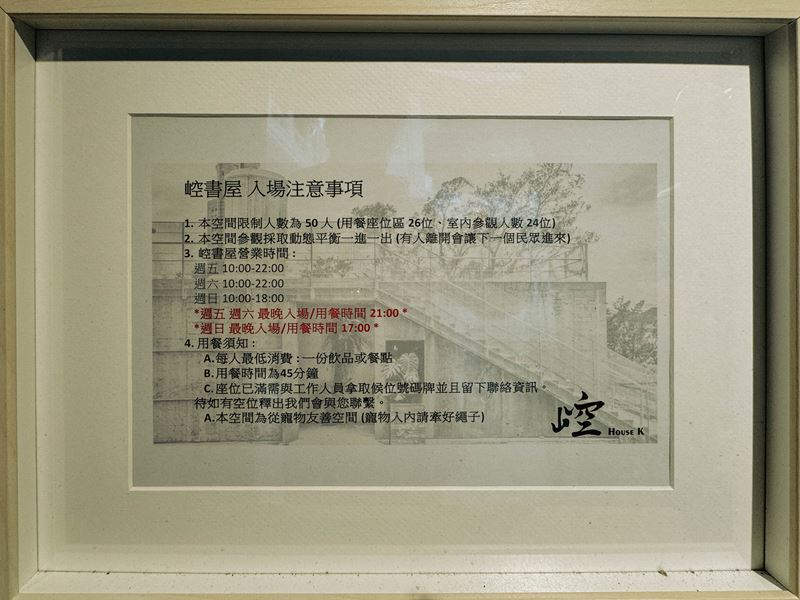 崆書屋 入場注意事項
1. 本空間限制人數為 50 人 (用餐座位區 26位、室內參觀人數 24位)
2. 本空間參觀採取動態平衡一進一出 (有人離開會讓下一個民眾進來)
3. 崆書屋營業時間 :
週五 10:00-22:00
週六 10:00-22:00
週日 10:00-18:00
*週五 週六 最晚入場/用餐時間 21:00 *
*週日 最晚入場/用餐時間 17:00 *
4. 用餐須知 :
A.每人最低消費 : 一份飲品或餐點
B.用餐時間為45分鐘
C.座位已滿需與工作人員拿取候位號碼牌並且留下聯絡資訊。
待如有空位釋出我們會與您聯繫。
A.本空間為從寵物友善空間 (寵物入內請牽好繩子)
崆 House K